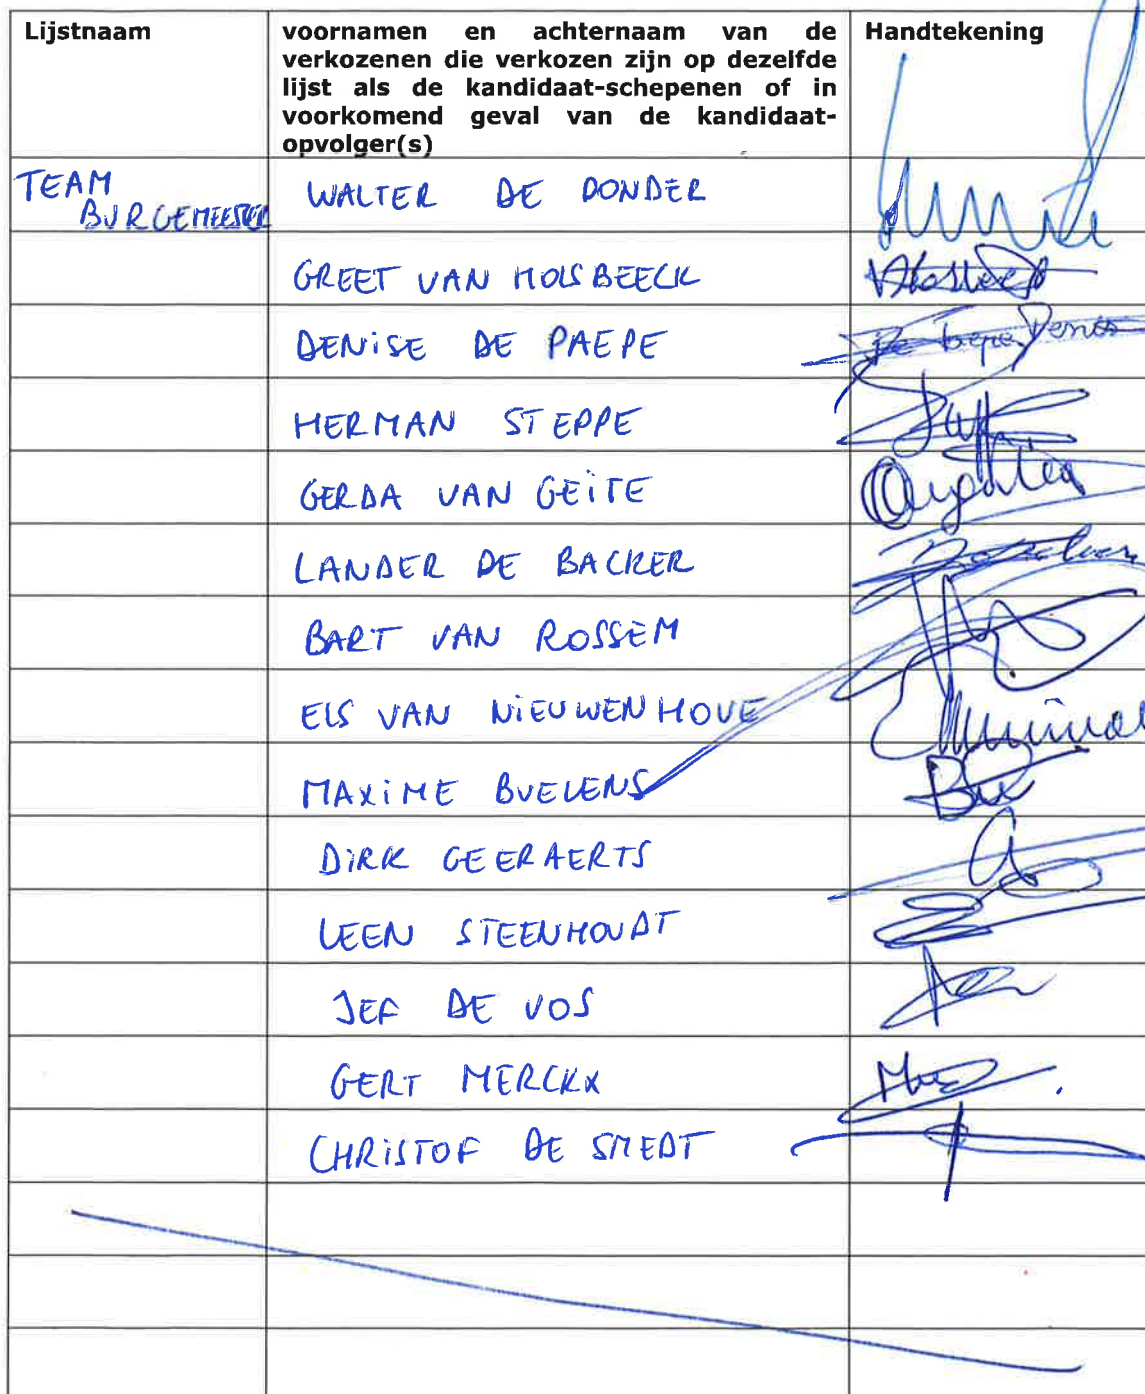 Lijstnaam
voornamen en achternaam van de
verkozenen die verkozen zijn op dezelfde
lijst als de kandidaat-schepenen of in
voorkomend geval van de kandidaat-
opvolger(s)
Handtekening
TEAM
BURGEMEESTER
WALTER DE DONDER
GREET VAN HOLSBEECK
DENISE DE PAEPE
HERMAN STEPPE
GERDA VAN GEITE
LANDER DE BACKER
BART VAN ROSSEM
ELS VAN NIEUWENHOVE
MAXIME BUELENS
DIRK GEERAERTS
LEEN STEENHOUDT
JEF DE VOS
GERT MERCKX
CHRISTOF DE SMEDT